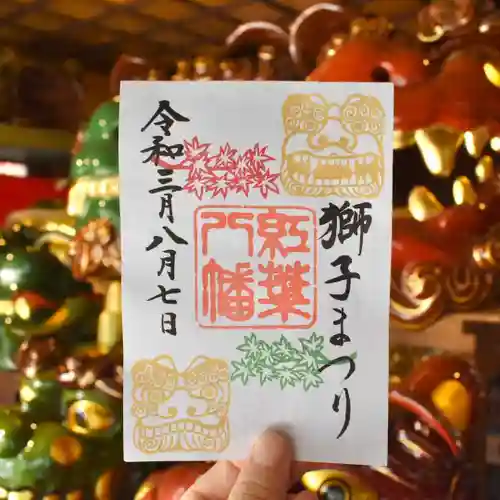 獅子まつり
紅葉
八幡
令和三年八月七日